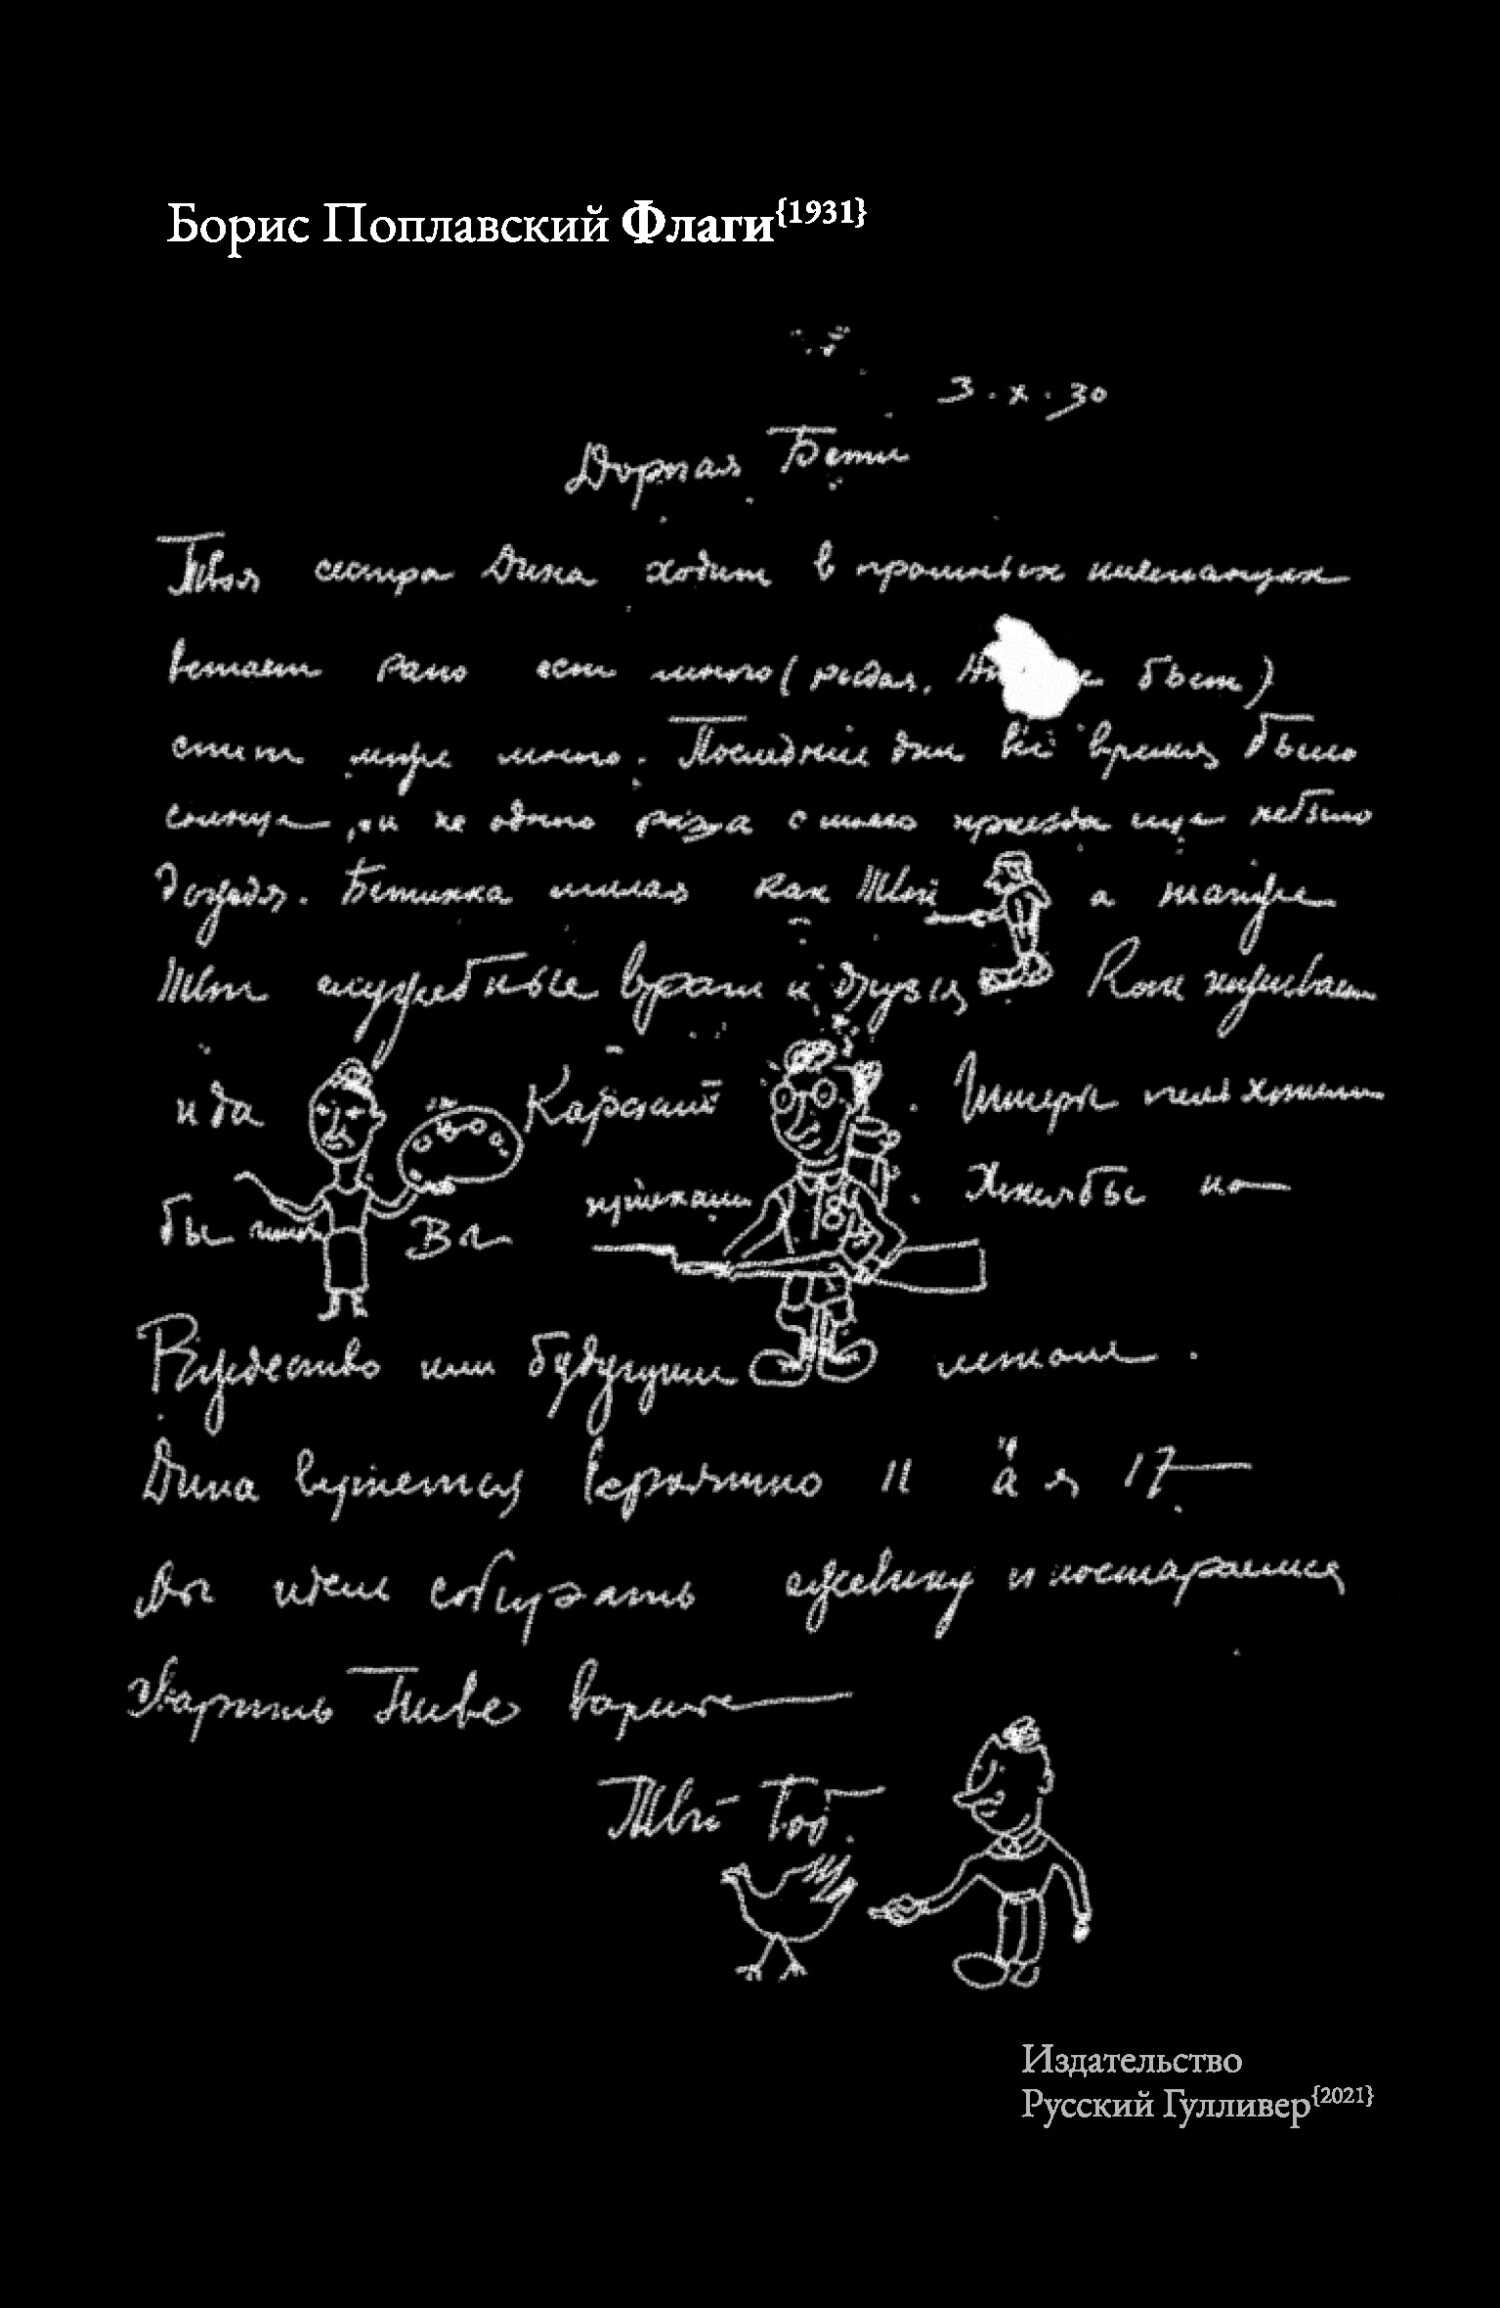 Борис Поплавский Флаги{1931}
3.X.30
Дорогая Бети
Твоя сестра Дина ходит в
встаёт рано ест много (рыдая,
спит тоже много. Последние дни всё время было
солнце, и ни одного раза с приезда ещё не было
дождя. Бетинка милая как Твой а также
Твои служебные враги и друзья Как поживает
Ида Карский
бы Вы приехали
Рождество или будущим летом.
Дина вернется вероятно 11 а я 17
Мы идем собирать ежевику и постараемся
сварить Тебе варенье
Твой Боб.
Издательство
Русский Гулливер{2021}